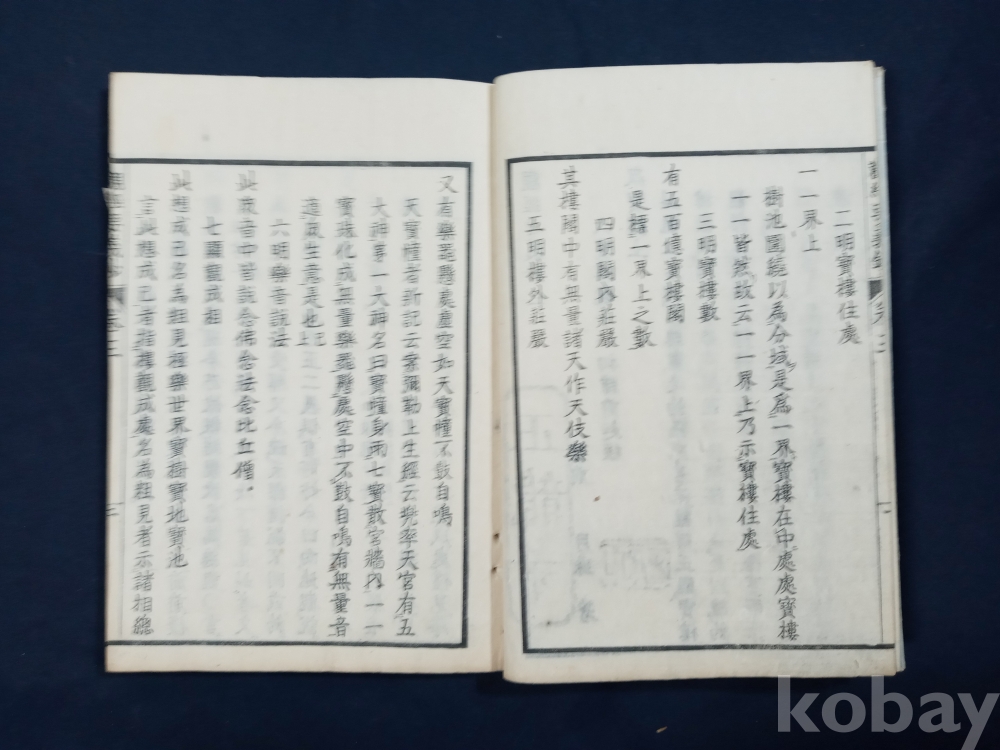 二明寶樓住處
一一界上
樹池圍繞以爲分域是爲一界寶樓在中處處寶樓
十一皆然故云一一界上乃示寶樓住處
三明寶樓數
有五百億寶樓閣
是標一界上之數
四明閣內莊嚴
其樓閣中有無量諸天作天伎樂
三明樓外莊嚴
又有樂器懸處虛空如天寶幢不鼓自鳴
天寶幢者新記云案彌勒上生經云兜率天宮有五
大神每一大神名曰寶幢身雨七寶散宮牆內一一
寶珠化成無量樂器懸處空中不鼓自鳴有無量音
適衆生意是也
六明樂音說法
此衆音中皆說念佛念法念比丘僧
七觀成相
此想成已名爲粗見極樂世界寶樹寶地寶池
言此想成已者指樓觀成處名爲粗見者示諸相總
三
kobay